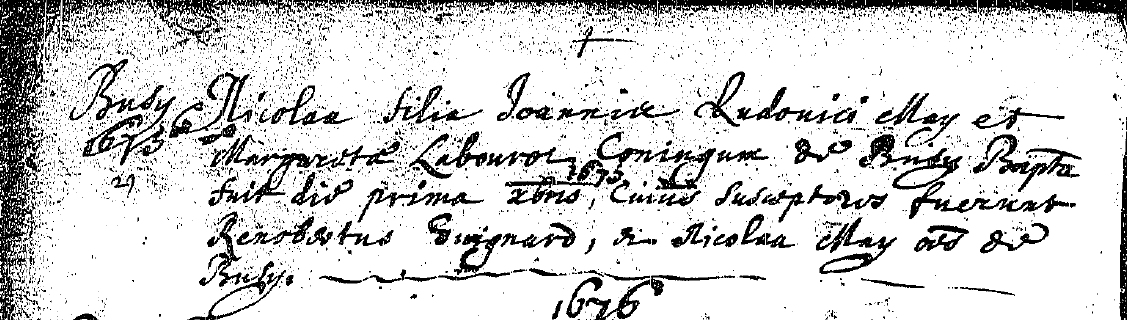 Busy Nicolaa filia Joannis Ludovici May et
1675 Margaretæ Labourot Coniugum de Busy Bapta
29 fuit die prima xbris 1675, Cuius susceptores fuerunt
Renobertus Guignard, & Nicolaa May oes de
Busy.
1676